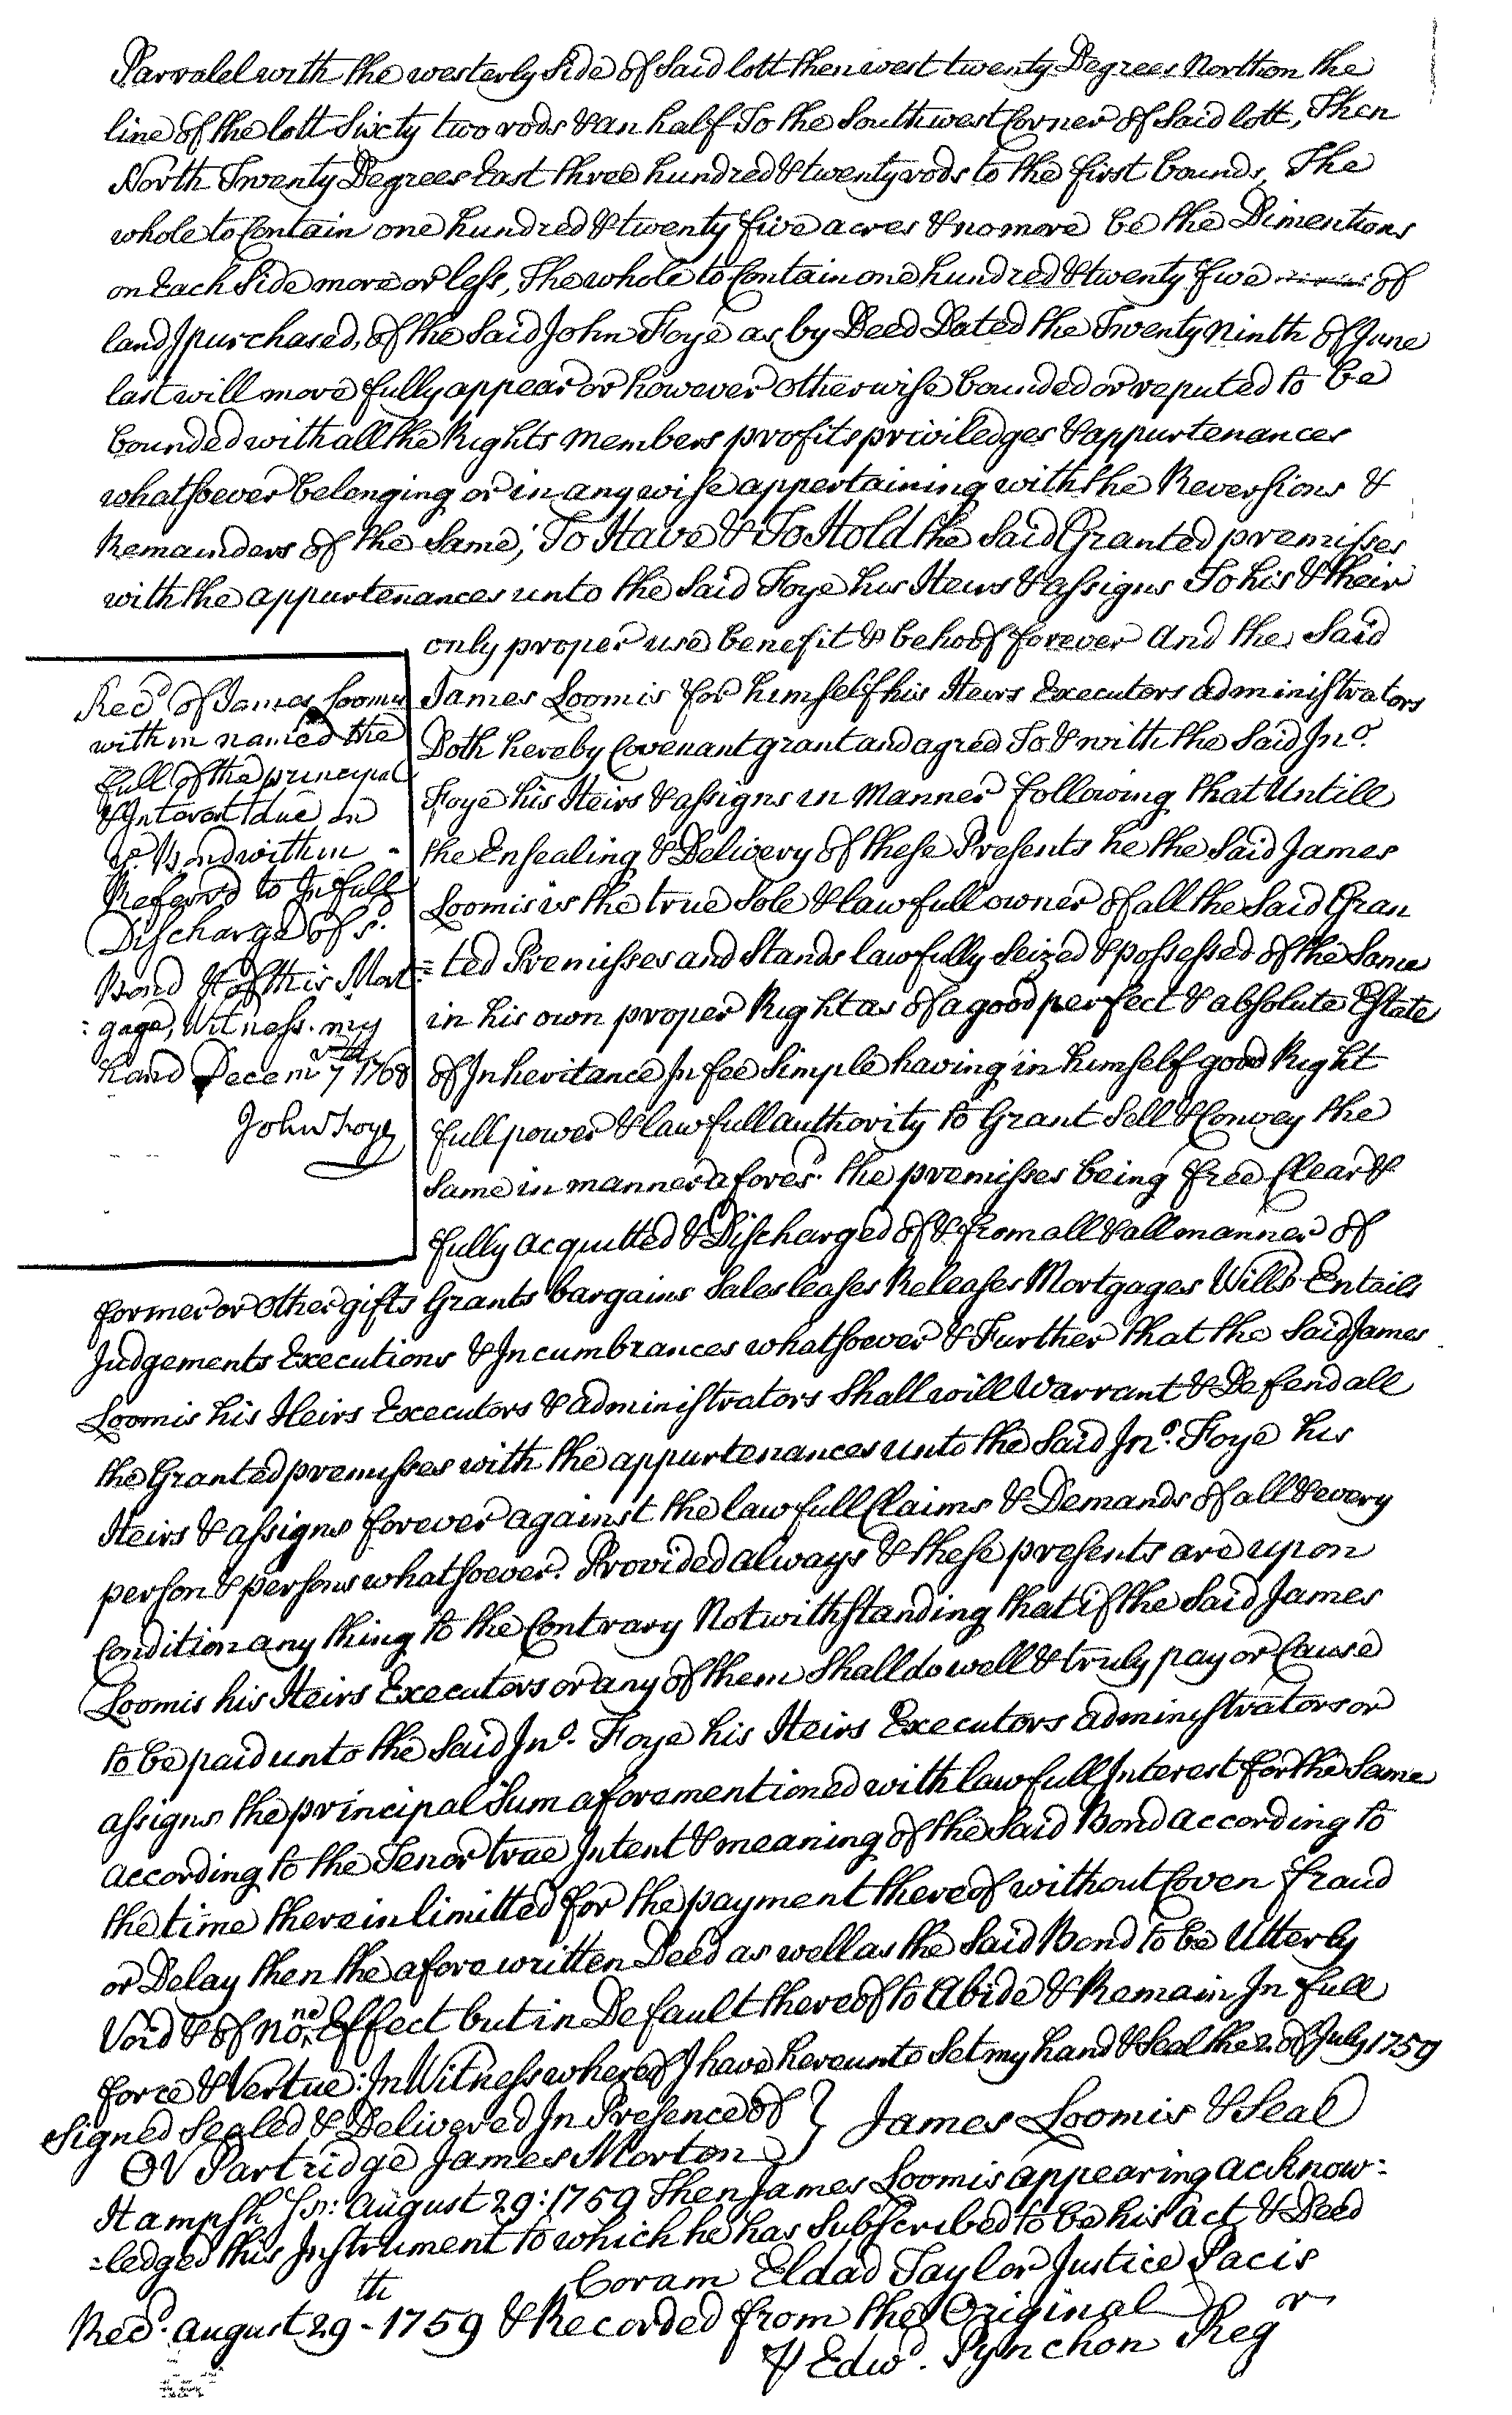 Parralel with the westerly Side of Said lott then west twenty Degrees North on the
line of the lott Sixty two rods & an half To the Southwest Corner of Said lott, Then
North Twenty Degrees East three hundred & twenty rods to the first bounds, The
whole to Contain one hundred & twenty five acres & no more be the Dimentions
on Each Side more or less, The whole to Contain one hundred & twenty five of
land I purchased, of the Said John Foye as by Deed Dated the Twenty Ninth of June
last will more fully appear or however otherwise bounded or reputed to be
bounded with all the Rights members profits priviledges & appurtenances
whatsoever belonging or in any wise appertaining with the Reversions &
Remainders of the Same; To Have & To Hold the Said Granted premisses
with the appurtenances unto the Said Foye his Heirs & assigns To his & their
only proper use benefit & behoof forever And the Said
James Loomis for himself his Heirs Executors administrators
Doth hereby Covenant grant and agred To & with the Said Jno.
Foye his Heirs & assigns in Manner following that Untill
the Ensealing & Delivery of these Presents he the Said James
Loomis is the true Sole & lawfull owner of all the Said Gran
=ted Premisses and Stands lawfully Seized & possessed of the Same
in his own proper Right as of a good perfect & absolute Estate
of Inheritance In fee Simple having in himself good Right
full power & lawfull authority to Grant Sell & Convey the
Same in manner afores.d the premisses being free Clear &
fully acquitted & Discharged of & from all & all manner of
Rec.d of James Loomis
within named the
full of the principal
& Interest due on
ye. Bond within
Referrd to In full
Discharge of s.d
Bond & of this Mort
=gage, Witness my
hand Decemr 7th 1768
John Foye
former or other gifts Grants bargains Sales leases Releases Mortgages Wills Entails
Judgements Executions & Incumbrances whatsoever & Further that the Said James
Loomis his Heirs Executors & administrators Shall will Warrant & Defend all
the Granted premisses with the appurtenances unto the Said Jno. Foye his
Heirs & assigns forever against the lawfull Claims & Demands of all & every
person & persons whatsoever. Provided always & these presents are upon
Condition any thing to the Contrary Notwithstanding that if the Said James
Loomis his Heirs Executors or any of them Shall do well & truly pay or Cause
to be paid unto the Said Jno. Foye his Heirs Executors administrators or
assigns the principal Sum aforementioned with lawfull Interest for the Same
according to the Tenor true Intent & meaning of the Said Bond according to
the time therein limitted for the payment thereof without Coven fraud
or Delay then the afore written Deed as well as the Said Bond to be Utterly
Void & of None Effect but in Default thereof to Abide & Remain In full
force & Vertue: In Witness whereof I have hereunto Set my hand & Seal the 2. of July 1759
Signed Sealed & Delivered In Presence of } James Loomis & Seal
OV Partridge James Morton
Hampsh Ss: August 29: 1759 Then James Loomis appearing acknow=
=ledged this Instrument to which he has Subscribed to be his act & Deed
Coram Eldad Taylor Justice Pacis
Rec.d August 29th - 1759 & Recorded from the Original
⅌ Edw.d Pynchon Regr